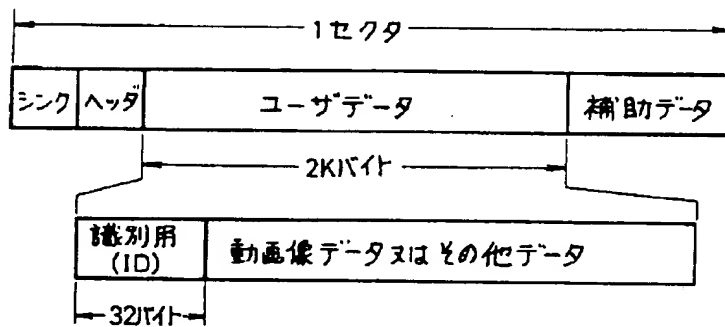 1セクタ
シンク ヘッダ ユーザデータ 補助データ
2Kバイト
識別用 動画像データ又はその他データ
(ID)
32バイト